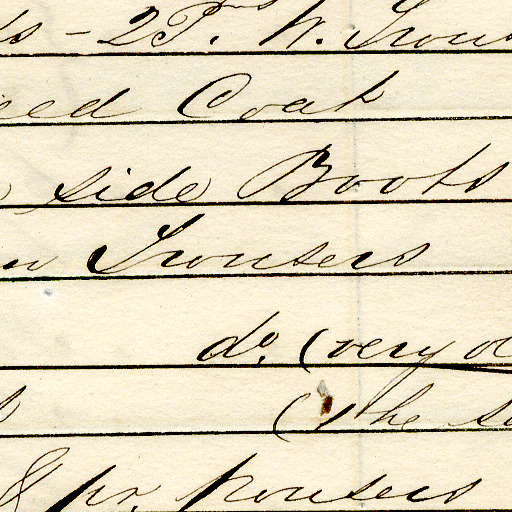 - 2 Prs W. Trous
Coat
side Boots
Trousers
do. (very ol
(the so
& pr. trousers